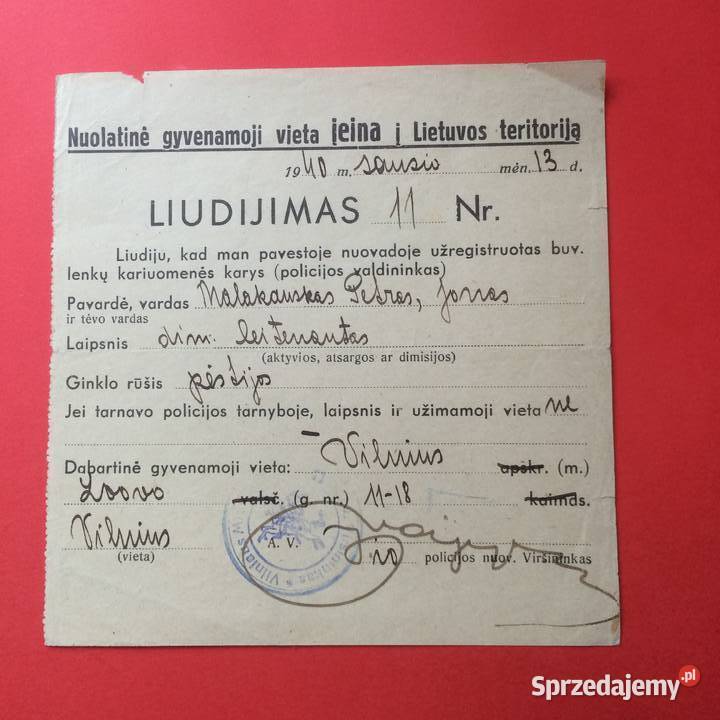 Nuolatinė gyvenamoji vieta įeina į Lietuvos teritoriją
1940 m. sausio mėn. 13 d.
LIUDIJIMAS 11 Nr.
Liudiju, kad man pavestoje nuovadoje užregistruotas buv.
lenkų kariuomenės karys (policijos valdininkas)
Pavardė, vardas Malakauskas Petras, Jonas
ir tėvo vardas
Laipsnis dim. leitenantas
(aktyvios, atsargos ar dimisijos)
Ginklo rūšis pėstijos
Jei tarnavo policijos tarnyboje, laipsnis ir užimamoji vieta ne
Dabartinė gyvenamoji vieta: Vilnius apskr. (m.)
Lvovo valsč. (g. nr.) 11-18 kaimas.
Vilnius A. V. policijos nuov. Viršininkas
(vieta)
Vilniaus
Sprzedajemy.pl